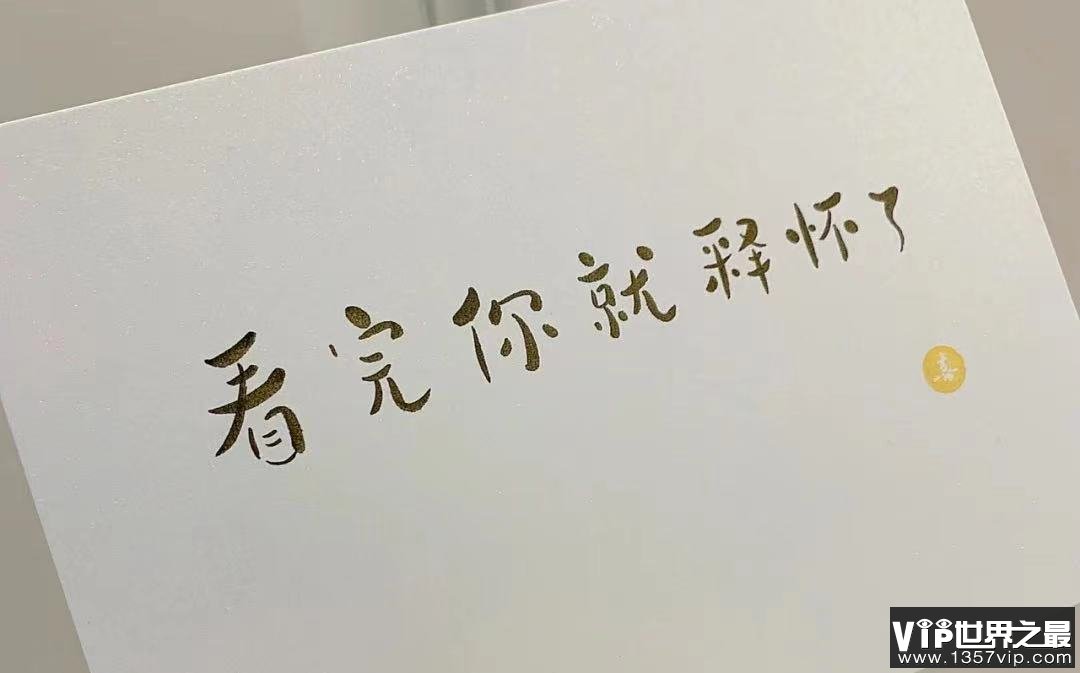 看完你就释怀了
嘉
VIP世界之最
www.1357vip.com